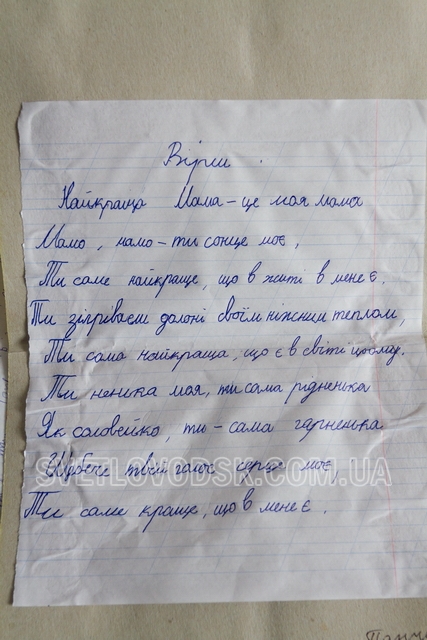 Вірш.
Найкраща Мама – це моя мама
Мамо, мамо – ти сонце моє,
Ти саме найкраще, що в житі в мене є.
Ти зігріваєш долоні своїм ніжним теплом,
Ти сама найкраща, що є в світі цьому.
Ти ненька моя, ти сама рідненька
Як соловейко, ти – сама гарненька
Щебече твій голос серце моє,
SVETLOVODSK.COM.UA
Ти саме краще, що в мене є.